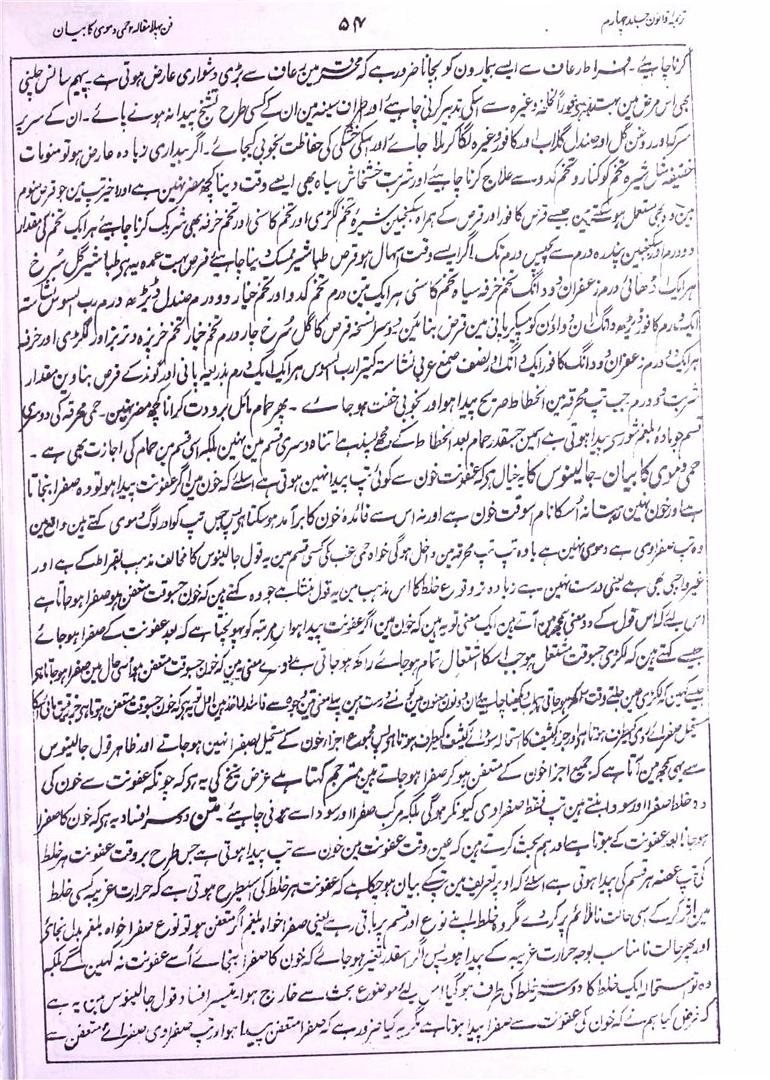 ترجمہ قانون جلد چہارم
۵۴
فن پہلا مقالہ حمی دموی کا بیان
کرنا چاہیے۔ رعاف سے ایسے بیمارون کو بچانا ضرور ہے کہ محرقہ مین رعاف سے بڑی دشواری عارض ہوتی ہے۔ سانس چلنی
بھی اس مرض مین بہت فوراً لخلخہ وغیرہ سے اسکی تدبیر کرنی چاہیے اور اطراف سینہ مین ان کے کسی طرح تشنج پیدا نہ ہونے پائے۔ ان کے سر پر
سرکہ اور روغن گل اور صندل گلاب اور کافور وغیرہ لگا کر ملا جاے اور اسکی خشکی کی حفاظت بخوبی کیجائے۔ اگر بیداری زیادہ عارض ہو تو منومات
خفیفہ مثل شیرہ تخم کوکنار و تخم کدو سے علاج کرنا چاہیے اور شربت خشخاش سیاہ بھی ایسے وقت دینا کچھ مضر نہین ہے اور اخیر تپ مین جو قرص منوم
ہین وہ بھی مستعمل ہو سکتے ہین جیسے قرص کافور اور قرص کے ہمراہ سکنجبین شیرہ تخم ککڑی اور تخم کاسنی اور تخم خرفہ بھی شریک کرنا چاہیے ہر ایک تخم کی مقدار
دو درم اور سکنجبین پندرہ درم سے پچیس درم تک۔ اگر ایسے وقت اسہال ہو قرص طباشیر ممسک دینا چاہیے قرص بہت عمدہ یہ ہی طباشیر گل سرخ
ہر ایک اڈھائی درم زعفران دو دانگ تخم خرفہ سیاہ تخم کاسنی ہر ایک تین درم تخم کدو اور تخم خیار دو درم صندل ڈیڑھ درم رب السوس نشاستہ
ایک درم کافور ڈیڑھ دانگ ان دواؤن کو پیسکر پانی مین قرص بنائین دوسرا نسخہ قرص کا گل سرخ چار درم تخم خیار تخم خرپزہ و تربز اور ککڑی اور خرفہ
ہر ایک درم زعفران دو دانگ کافور ایک دانگ ونصف صمغ عربی نشاستہ کتیرا رب السوس ہر ایک ایک درم بذریعہ پانی اور گوند کے قرص بناوین مقدار
شربت دو درم جب تپ محرقہ مین انحطاط صریح پیدا ہو اور بخوبی خفت ہو جاے۔ پھر حمام مائل برودت کرانا کچھ مضر نہین۔ حمی محرقہ کی دوسری
قسم جو مادہ بلغم شور سے پیدا ہوتی ہے اسمین جسقدر حمام بعد انحطاط کے مجھے پسند ہے اتنا دوسری قسم مین نہین بلکہ اسی قسم مین حمام کی اجازت بھی ہے۔
حمی دموی کا بیان۔ جالینوس کا یہ خیال ہے کہ عفونت خون سے کوئی تپ پیدا نہین ہوتی ہے اسلئے کہ خون مین اگر عفونت پیدا ہو تو وہ صفرا بنجاتا
ہے اور خون نہین رہتا نہ اسکا نام اسوقت خون ہے اور نہ اس سے فائدہ خون کا برآمد ہو سکتا ہے پس جس تپ کو اور لوگ دموی کہتے ہین واقع مین
وہ تپ صفراوی ہے دموی نہین ہے یا وہ تپ محرقہ مین داخل ہوگی خواہ حمی غب کی کسی قسم مین یہ قول جالینوس کا مخالف مذہب بقراط کے ہے اور
غیر واجبی بھی ہے یعنی درست نہین ہے زیادہ تر وقوع خطا کا اس مذہب مین یہ قول منشا ہے جو وہ کہتے ہین کہ خون جسوقت متعفن ہو صفرا ہو جاتا ہے
اس لئے کہ اس قول کے دو معنی سمجھ مین آتے ہین ایک معنی تو یہ ہین کہ خون مین اگر عفونت پیدا ہو اس مرتبہ کو پہونچتا ہے کہ بعد عفونت کے صفرا ہو جائے
جیسے کہتے ہین کہ لکڑی جسوقت مشتعل ہو جب اسکا اشتعال تمام ہو جائے راکھ ہو جاتی ہے دوسرے معنی یہ ہین کہ خون جسوقت متعفن ہو اسی حال مین صفرا ہو جاتا ہی
جیسے کہین کہ لکڑی عین جلتے وقت راکھ ہو جاتی ہے دیکھنا چاہیے ان دونون معنون مین کون سے درست ہین پہلے معنی تین وجہ سے فاسد اول تو یہ ہی کہ خون جسوقت متعفن ہوتا ہی جزو رقیق اسکا
مستحیل صفرائے ردی کیطرف ہوتا ہی اور جزو کثیف کا استحالہ سودائے کثیف کیطرف ہوتا ہی پس مجموع اجزا خون کے مستحیل بصفرا نہین ہو جاتے اور ظاہر قول جالینوس
سے یہی سمجھ مین آتا ہے کہ جمیع اجزا خون کے متعفن ہو کر صفرا ہو جاتے ہین مترجم کہتا ہے غرض شیخ کی یہ ہی کہ چونکہ عفونت سے خون کی
دو خلط صفرا اور سودا بنتے ہین تپ فقط صفراوی کیونکر ہوگی بلکہ مرکب صفرا اور سودا سے ہونی چاہیے۔ متن دوسرا فساد یہ ہی کہ خون کا صفرا
ہو جانا بعد عفونت کے ہوتا ہے اور ہم بحث کرتے ہین کہ عین وقت عفونت مین خون سے تپ پیدا ہوتی ہے جس طرح بروقت عفونت ہر خلط
کی تپ عفنہ ہر قسم کی پیدا ہوتی ہے اسلئے کہ اوپر تعریف مین تپ کے بیان ہو چکا ہے کہ عفونت ہر خلط کی اسطرح ہوتی ہے کہ حرارت غریبہ کسی خلط
مین اثر کر کے اسی حالت ناملائم پر کردے مگر وہ خلط اپنے نوع اور قسم پر باقی رہے یعنی صفرا خواہ بلغم اگر متعفن ہو تو نوع صفرا خواہ بلغم بدل نجائے
اور پھر حالت نامناسب بوجہ حرارت غریبہ کے پیدا ہو پس اگر اسقدر تغیر ہو جائے کہ خون کا صفرا بنجائے اسے عفونت نہ کہین گے بلکہ
وہ تو استحالہ ایک خلط کا دوسرے خلط کی طرف ہو گیا اس لئے موضوع بحث سے خارج ہوا تیسرا فساد قول جالینوس مین یہ ہے
کہ فرض کیا ہم نے کہ خون کی عفونت سے صفرا پیدا ہوتا ہے مگر یہ کیا ضرور ہے کہ صفرا متعفن پیدا ہو اور تپ صفراوی صفرائے متعفن سے